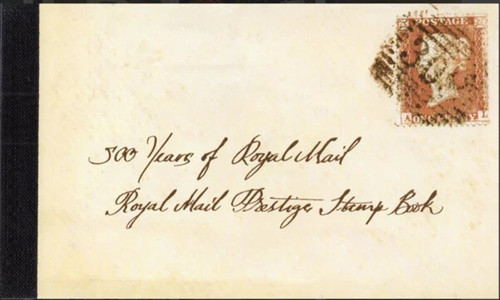 POSTAGE
500 Years of Royal Mail
Royal Mail Prestige Stamp Book